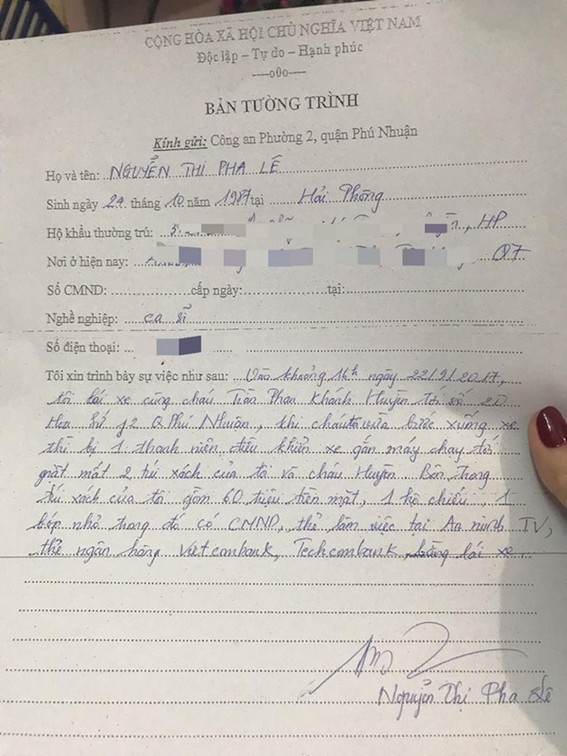 CỘNG HÒA XÃ HỘI CHỦ NGHĨA VIỆT NAM
Độc lập – Tự do – Hạnh phúc
-----o0o-----
BẢN TƯỜNG TRÌNH
Kính gửi: Công an Phường 2, quận Phú Nhuận
Họ và tên: NGUYỄN THỊ PHA LÊ
Sinh ngày 29 tháng 10 năm 1987 tại Hải Phòng
Hộ khẩu thường trú: HP
Nơi ở hiện nay: Q7
Số CMND: cấp ngày: tại:
Nghề nghiệp: ca sĩ
Số điện thoại:
Tôi xin trình bày sự việc như sau: Vào khoảng 16h ngày 22/9/2017,
tôi lái xe cùng cháu Trần Phan Khánh Huyền tới số 2D
Hoa Sứ f2 Q Phú Nhuận, khi cháu vừa bước xuống xe
thì bị 1 thanh niên điều khiển xe gắn máy chạy tới
giật mất 2 túi xách của tôi và cháu Huyền. Bên trong
túi xách của tôi gồm 60 triệu tiền mặt, 1 hộ chiếu, 1
bóp nhỏ trong đó có CMND, thẻ làm việc tại An ninh TV,
thẻ ngân hàng Vietcombank, Techcombank, bằng lái xe
Nguyễn Thị Pha Lê